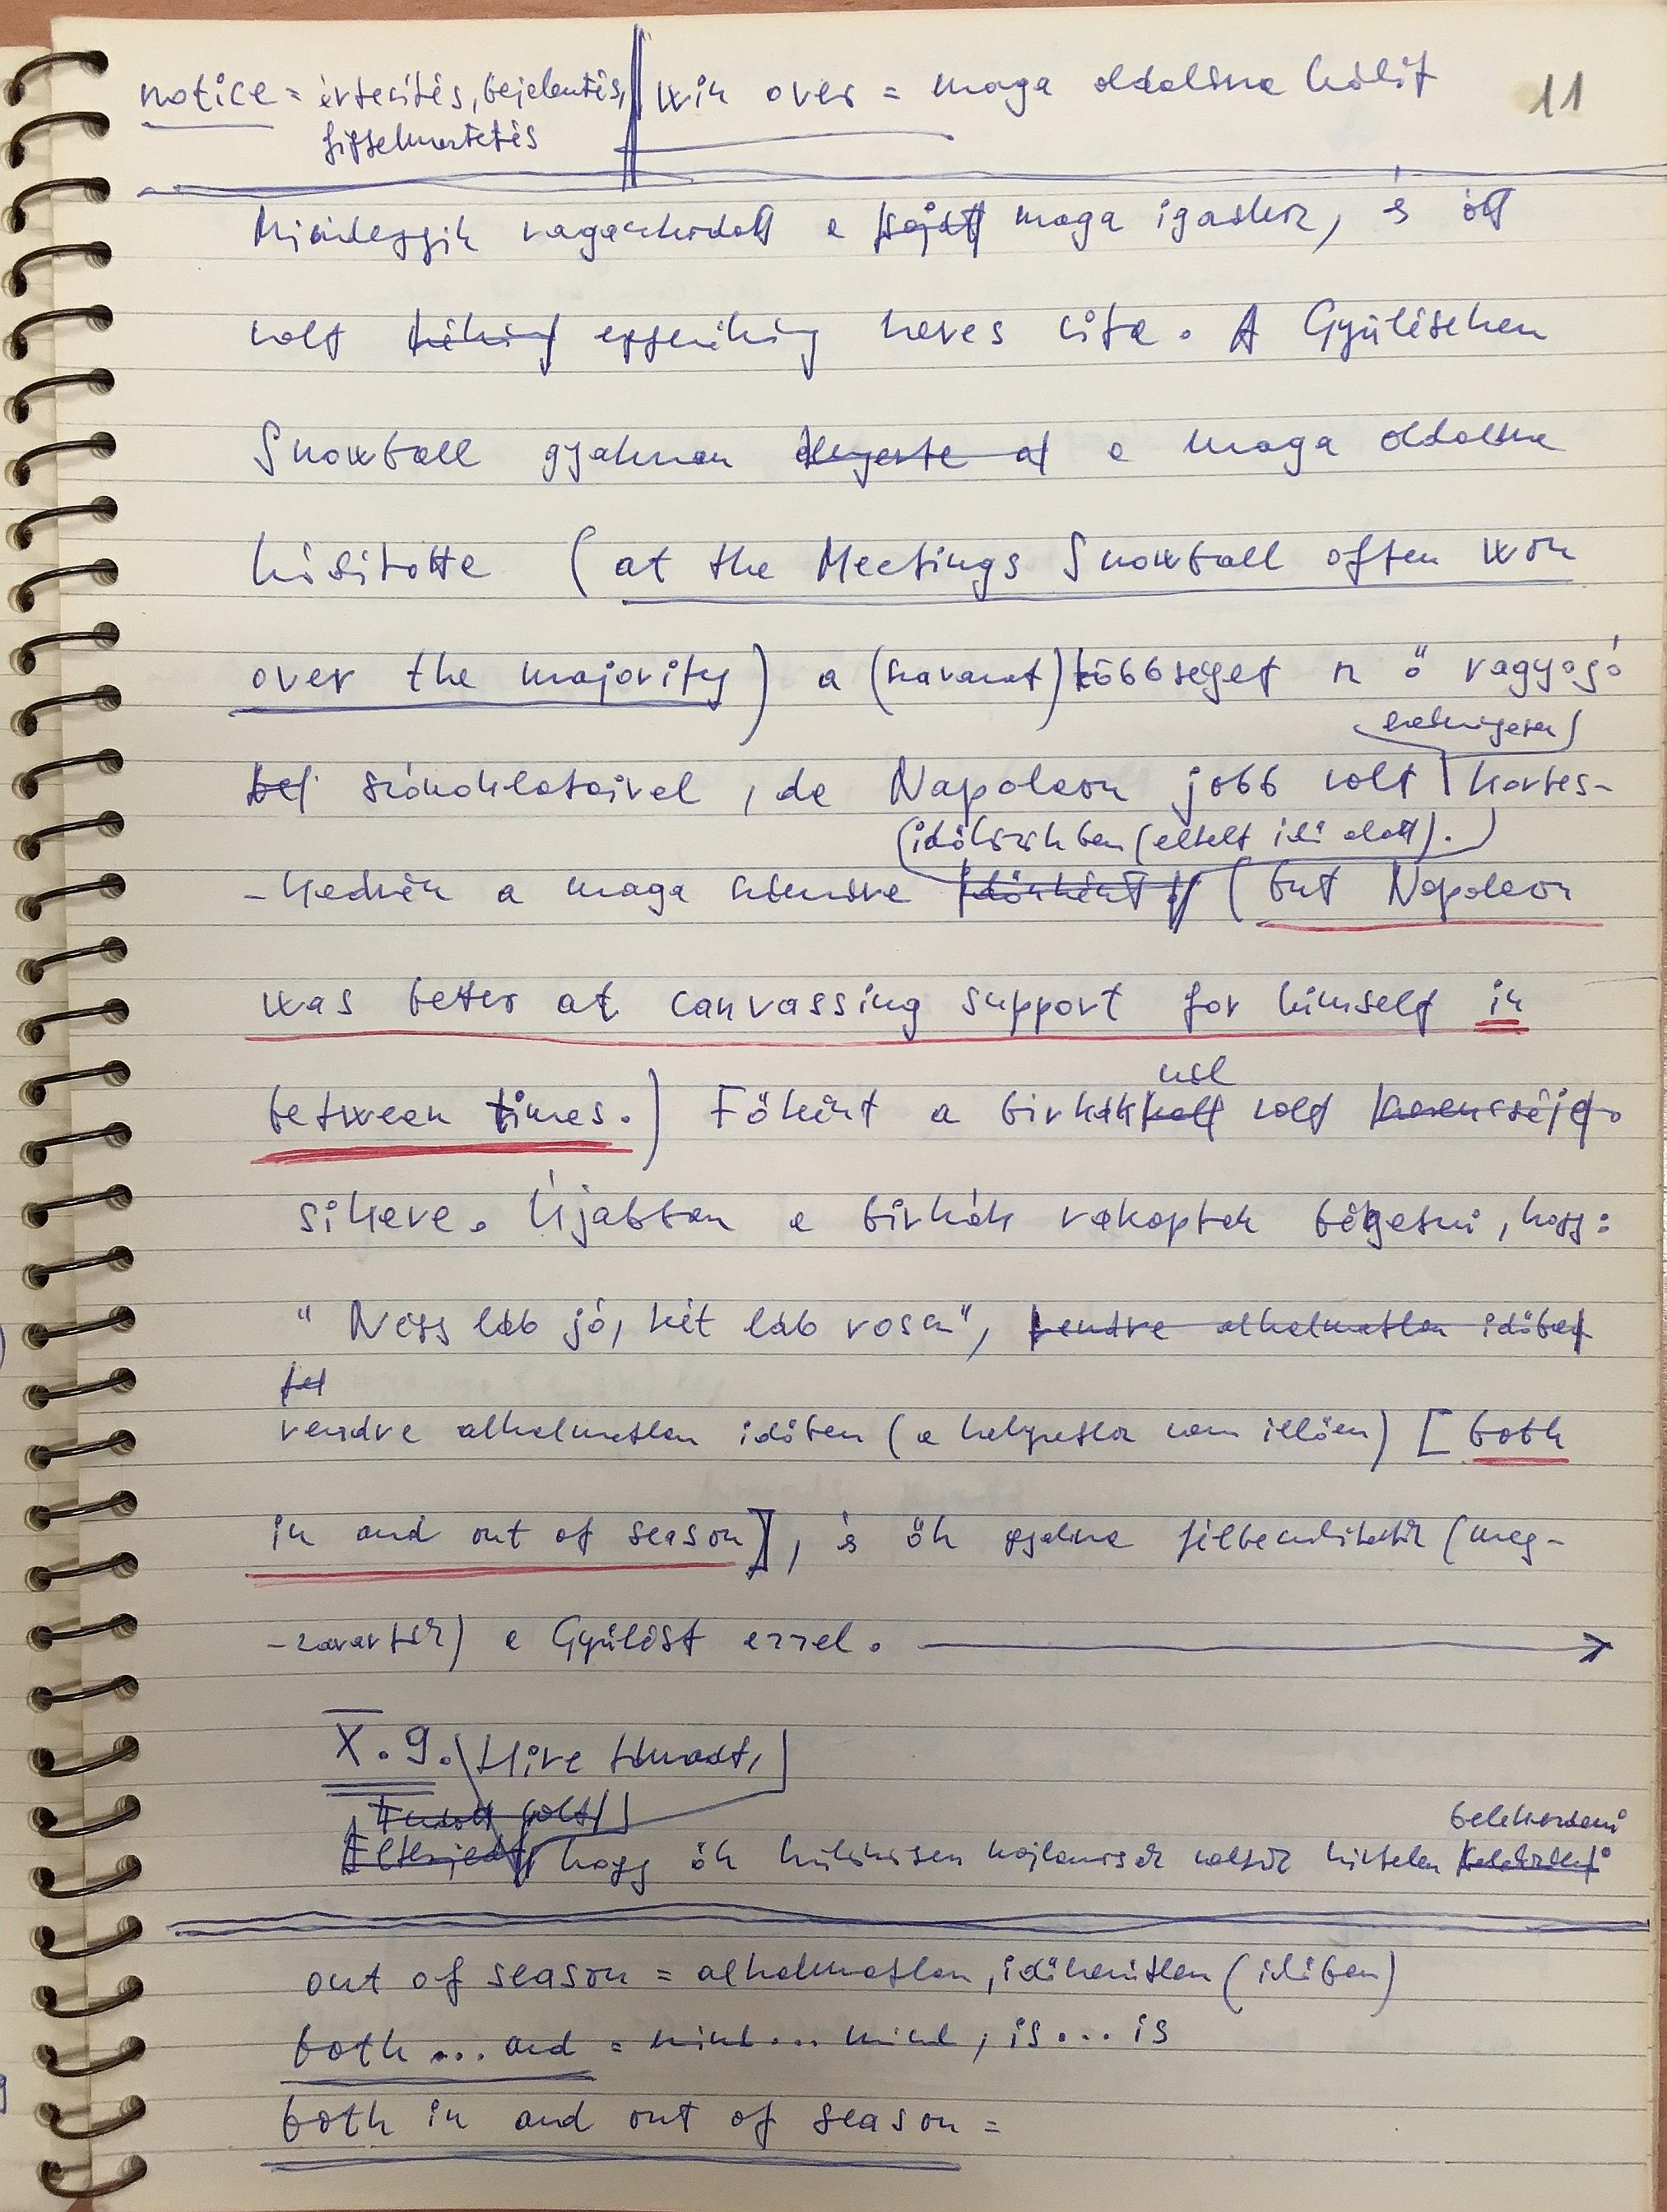 notice = értesítés, bejelentés, win over = maga oldalára hódít 11
figyelmeztetés
Mindegyik ragaszkodott a saját maga igazához, és ott
volt néhány egynéhány heves vita. A Gyűléseken
Snowball gyakran a maga oldalára
hódította (at the Meetings Snowball often won
over the majority) a (szavazat) többséget az ő ragyogó
szónoklataival, de Napoleon jobb volt kortes-
(időközökben (eltelt idő alatt).)
-kedvén a maga számára időnként (but Napoleon
was better at canvassing support for himself in
nál
between times.) Főként a birkák volt
sikere. Újabban a birkák rákaptak bégetni, hogy:
"Négy láb jó, két láb rossz", rendre alkalmatlan időben
rendre alkalmatlan időben (a helyzethez nem illően) [both
in and out of season], és ők gyakran félbeszakították (meg-
-zavarták) a Gyűlést ezzel.
X. 9. Híre támadt,
belekezdeni
Elterjedt, hogy ők különösen hajlamosak voltak hirtelen
out of season = alkalmatlan, időszerűtlen (időben)
both ... and = mind ... mind, is ... is
both in and out of season =